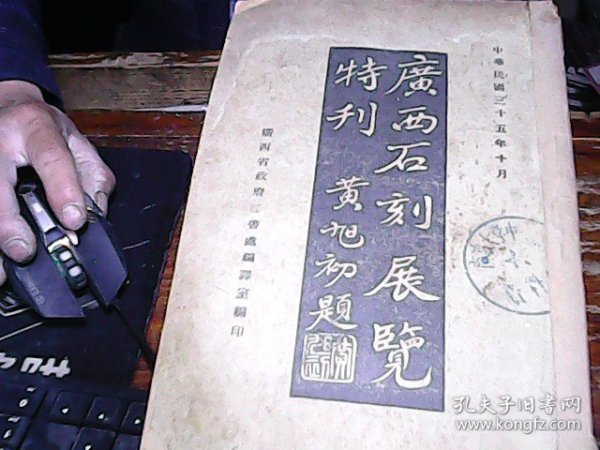 中華民國三十五年十月
廣西石刻展覽
特刊
黃旭初題
廣西省政府秘書處編譯室編印
孔夫子旧书网
www.kongfz.com